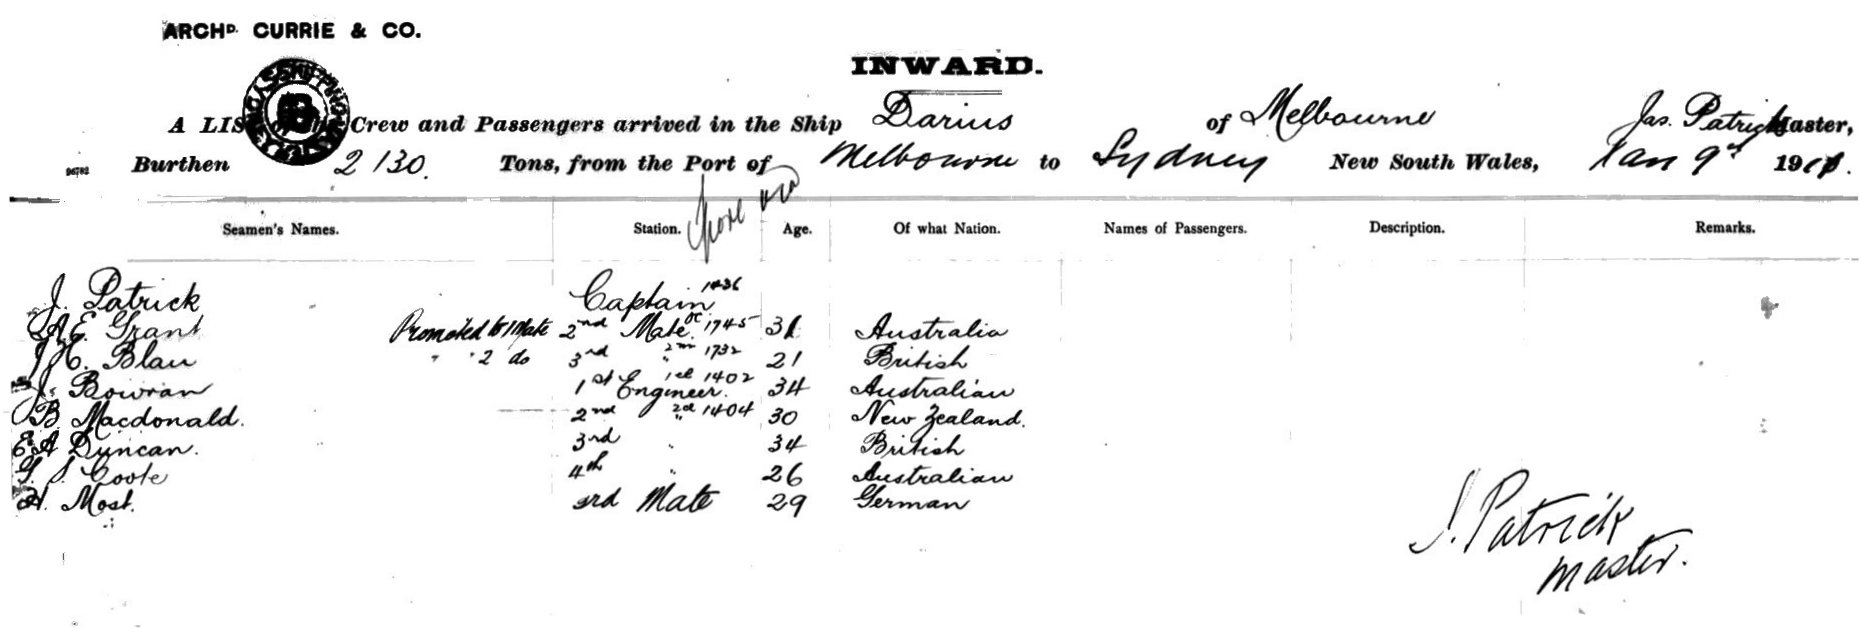 ARCHD. CURRIE & CO.
INWARD.
A LIST of the Crew and Passengers arrived in the Ship Darius of Melbourne Jas. Patrick Master,
96782 Burthen 2130. Tons, from the Port of Melbourne to Sydney New South Wales, Jan 9th 19
Seamen's Names. Station. Age. Of what Nation. Names of Passengers. Description. Remarks.
J. Patrick Captain 1436
A. E. Grant Promoted to 1 Mate 2nd Mate. OC 1745 31 Australia
J H. Blau " " 2 do 3rd " 2m 1732 21 British
J. Bowran 1st Engineer. 1cl 1402 34 Australian
B Macdonald. 2nd " 2cl 1404 30 New Zealand.
E A Duncan. 3rd " 34 British
G. S. Coote 4th " 26 Australian
H. Most. 3rd Mate 29 German
J. Patrick
Master.